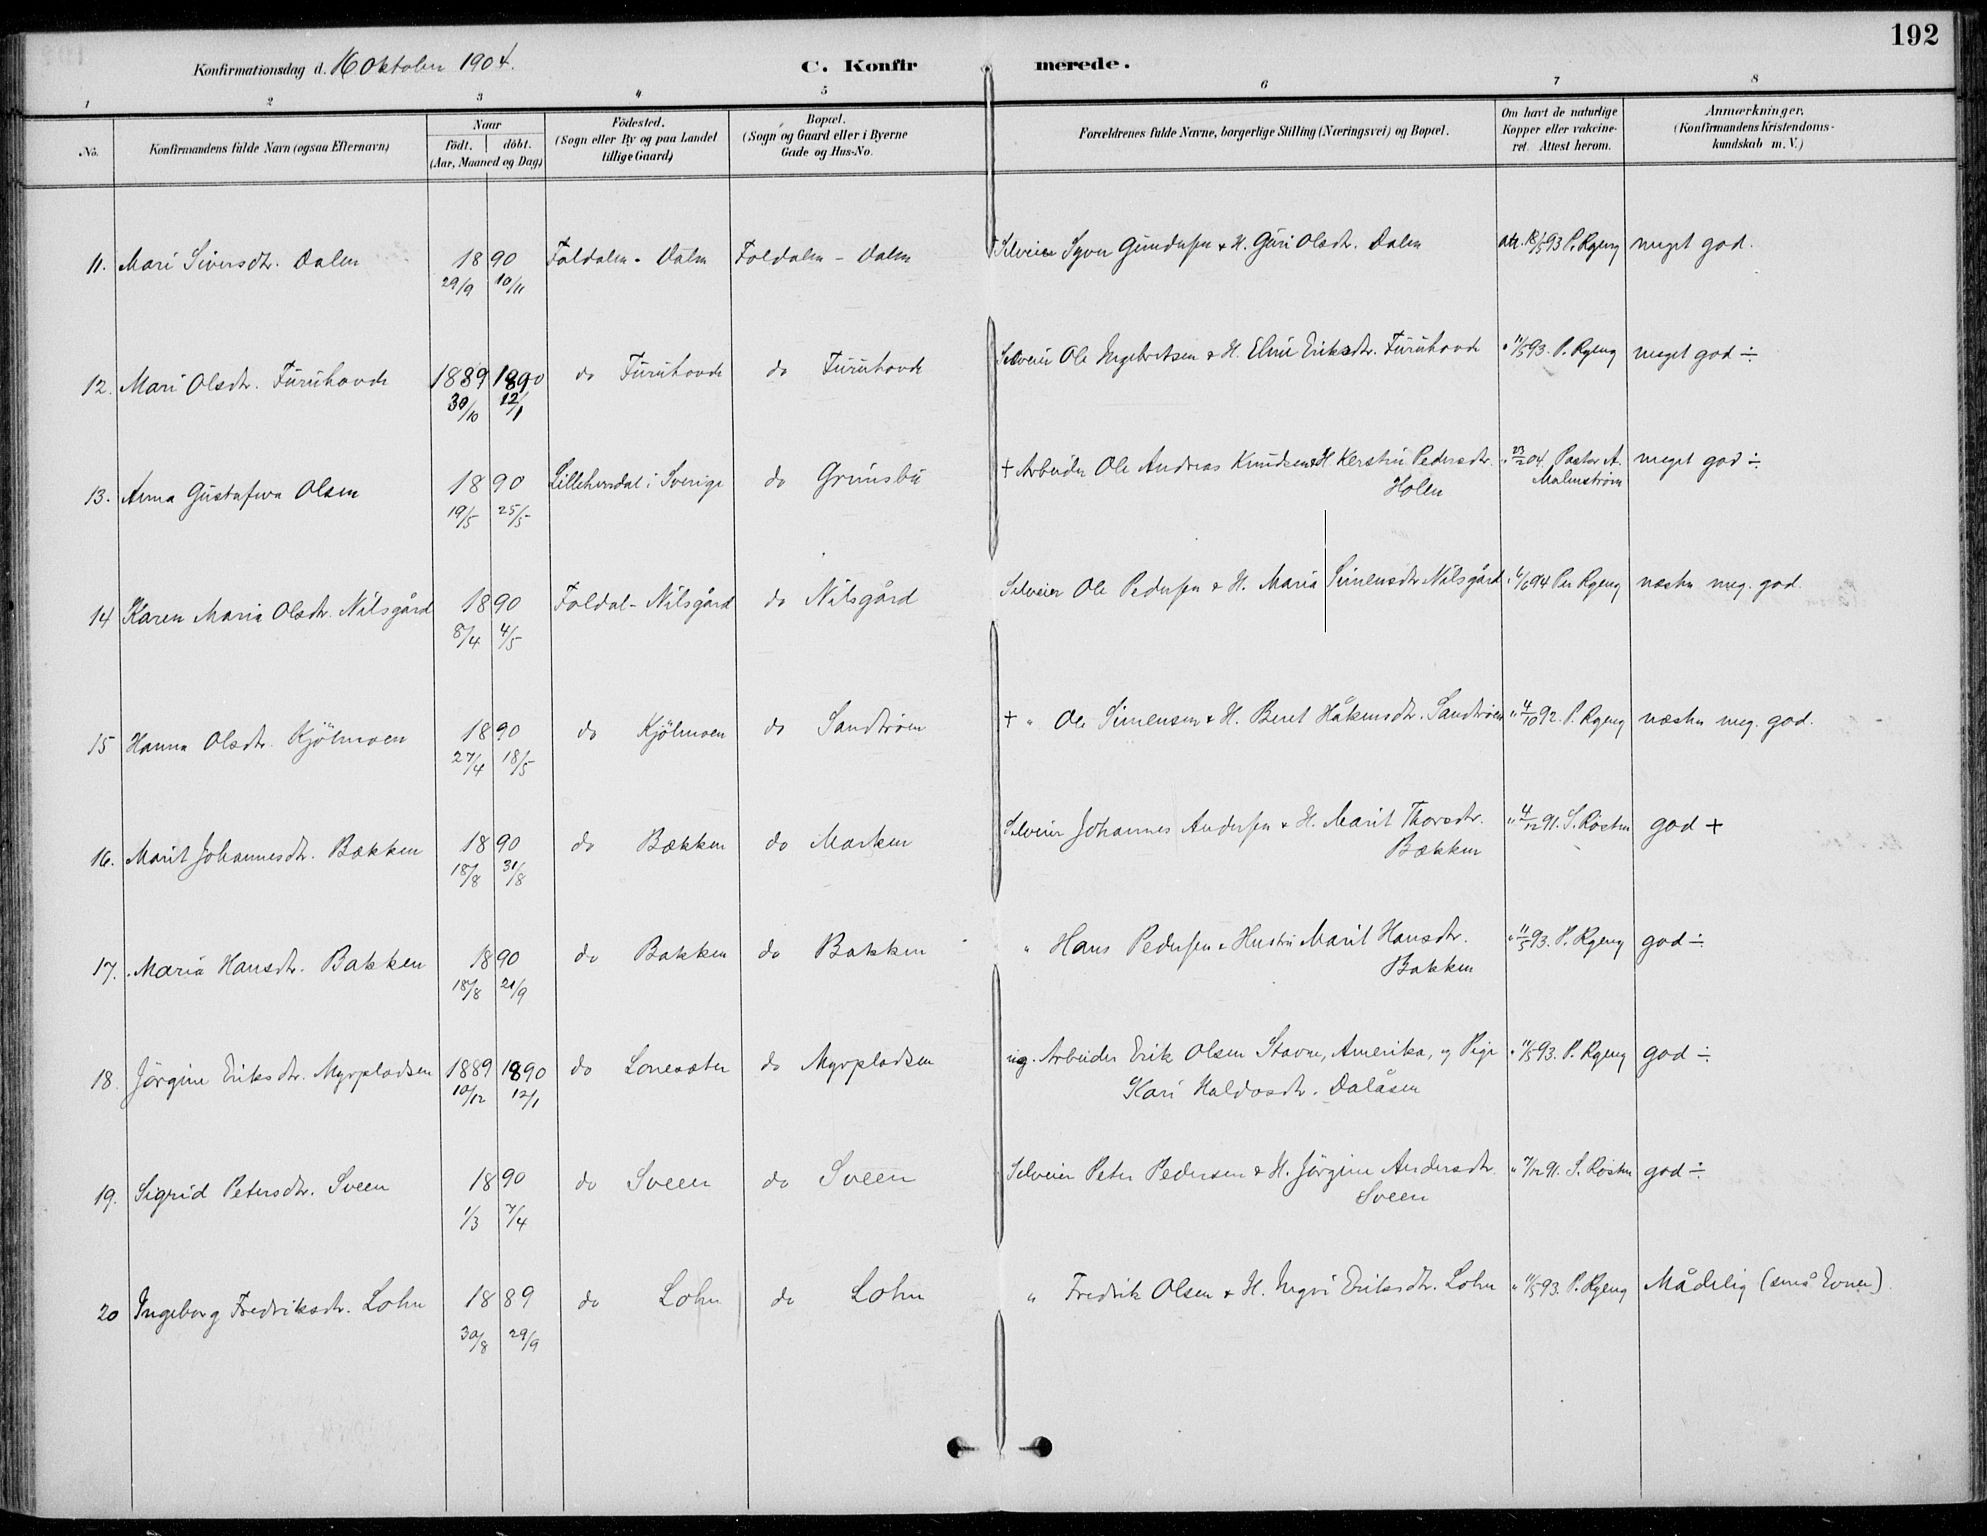 192
Konfirmationsdag d. 16 Oktober 1904.
C. Konfirmerede.
1 2 3 4 5 6 7 8
No. Konfirmandens fulde Navn (ogsaa Efternavn) Naar født. døbt. (Aar, Maaned og Dag) Födested. (Sogn eller By og paa Landet tillige Gaard) Bopæl. (Sogn og Gaard eller i Byerne Gade og Hus-No. Forældrenes fulde Navne, borgerlige Stilling (Næringsvei) og Bopæl. Om havt de naturlige Kopper eller vakcineret. Attest herom. Anmærkninger. (Konfirmandens Kristendomskundskab m. V.)
11. Mari Siversdtr. Dalen 1890 29/9 10/11 Foldalen - Dalen Foldalen - Dalen Selveier Syver Gundersen & H. Guri Olsdtr. Dalen att. 18/5 93 P. Ryeng meget god.
12. Mari Olsdtr. Furuhovde 1889 30/10 1890 12/1 do Furuhovde do Furuhovde Selveier Ole Ingebretsen & H. Eline Eriksdtr. Furuhovde " 11/5 93. P. Ryeng meget god ÷
13. Anna Gustafva Olsen 1890 19/5 25/5 Lillehersdal i Sverige do Grimsbu + Arbeider Ole Andreas Knudsen & H. Kerstin Pedersdtr. Holen " 23/2 04. Pastor A. Malmström meget god ÷
14 Karen Maria Olsdtr. Nilsgård 1890 8/4 4/5 Foldal - Nilsgård do Nilsgård Selveier Ole Pedersen & H. Maria Simensdtr Nilsgård 94 Per Ryeng næsten meg. god.
15 Hanna Olsdtr. Kjölmoen 1890 27/4 18/5 do Kjölmoen do Sandtrøen + " Ole Simensen & H. Beret Håkensdtr. Sandtrøen " 4/10 92. P. Ryeng næsten meg. god.
16. Marit Johannesdtr. Bækken 1890 18/8 31/8 do Bækken do Marken Selveier Johannes Andersen & H. Marit Thorsdtr. Bækken " 4/12 91. S. Røsten god +
17. Maria Hansdtr. Bakken 1890 18/8 21/9 do Bakken do Bakken " Hans Pedersen & Hustru Marit Hansdtr. Bakken " 11/5 93. P. Ryeng god ÷
18. Jørgine Eriksdtr. Myrpladsen 1889 10/12 1890 12/1 do Lonesæter do Myrpladsen ug. Arbeider Erik Olsen Stavne, Amerika, og Pige Kari Haldosdtr. Dalåsen " 11/5 93. P. Ryeng god ÷
19. Sigrid Petersdtr. Sveen 1890 1/3 7/4 do Sveen do Sveen Selveier Peter Pedersen & H. Jørgine Andersdtr. Sveen " 7/12 91. S. Røsten god ÷
20 Ingeborg Fredriksdtr. Lohn 1889 30/8 29/9 do Lohn do Lohn " Fredrik Olsen & H. Ingri Eriksdtr. Lohn " 11/5 93. P. Ryeng Mådelig (små Evner)